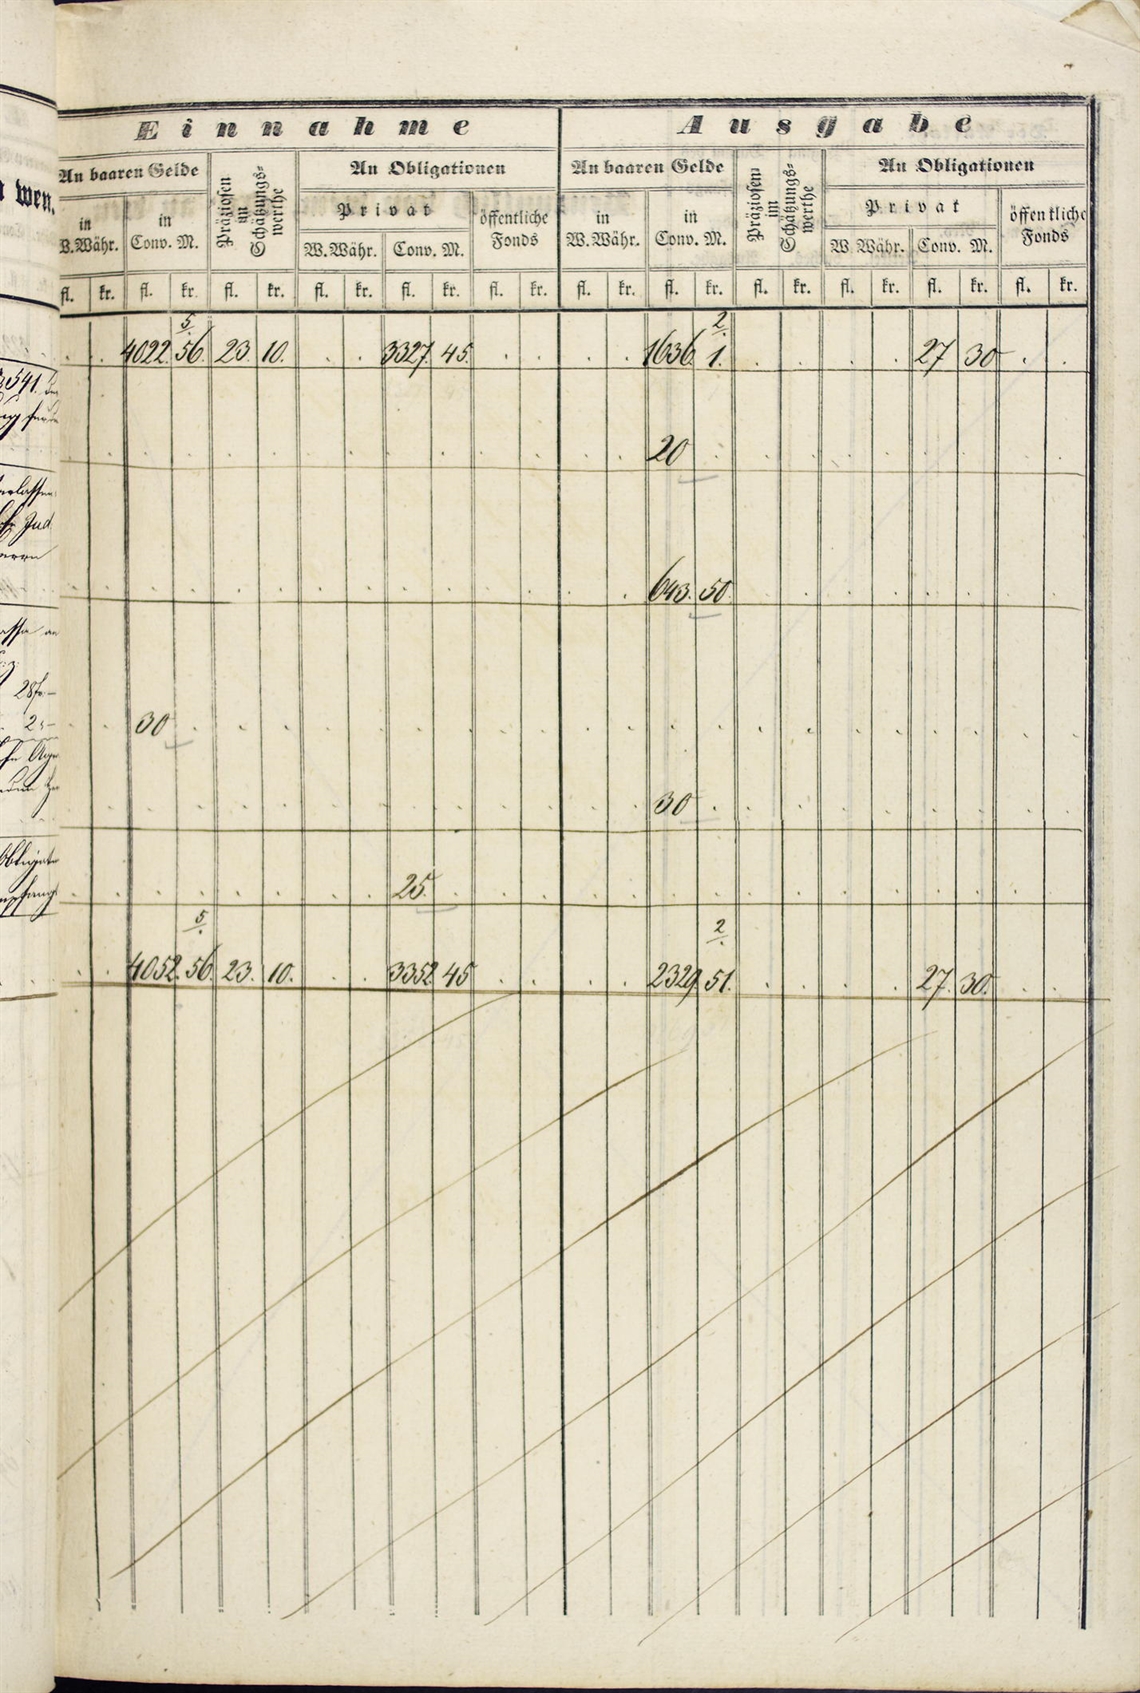 Einnahme Ausgabe
An baaren Gelde Präziosen im Schätzungs-werthe An Obligationen An baaren Gelde Präziosen im Schätzungs-werthe An Obligationen
wen.
in W.Währ. in Conv. M. Privat öffentliche Fonds in W.Währ. in Conv. M. Privat öffentliche Fonds
W.Währ. Conv. M. W.Währ. Conv. M.
fl. kr. fl. kr. fl. kr. fl. kr. fl. kr. fl. kr. fl. kr. fl. kr. fl. kr. fl. kr. fl. kr. fl. kr.
5 2
4022. 56. 23. 10. 3327. 45. 1636. 1. 27 30
541.
20
643. 50.
28 f -
30
30
25.
5 2
4052. 56. 23. 10. 3352. 45 2329. 51. 27. 30.